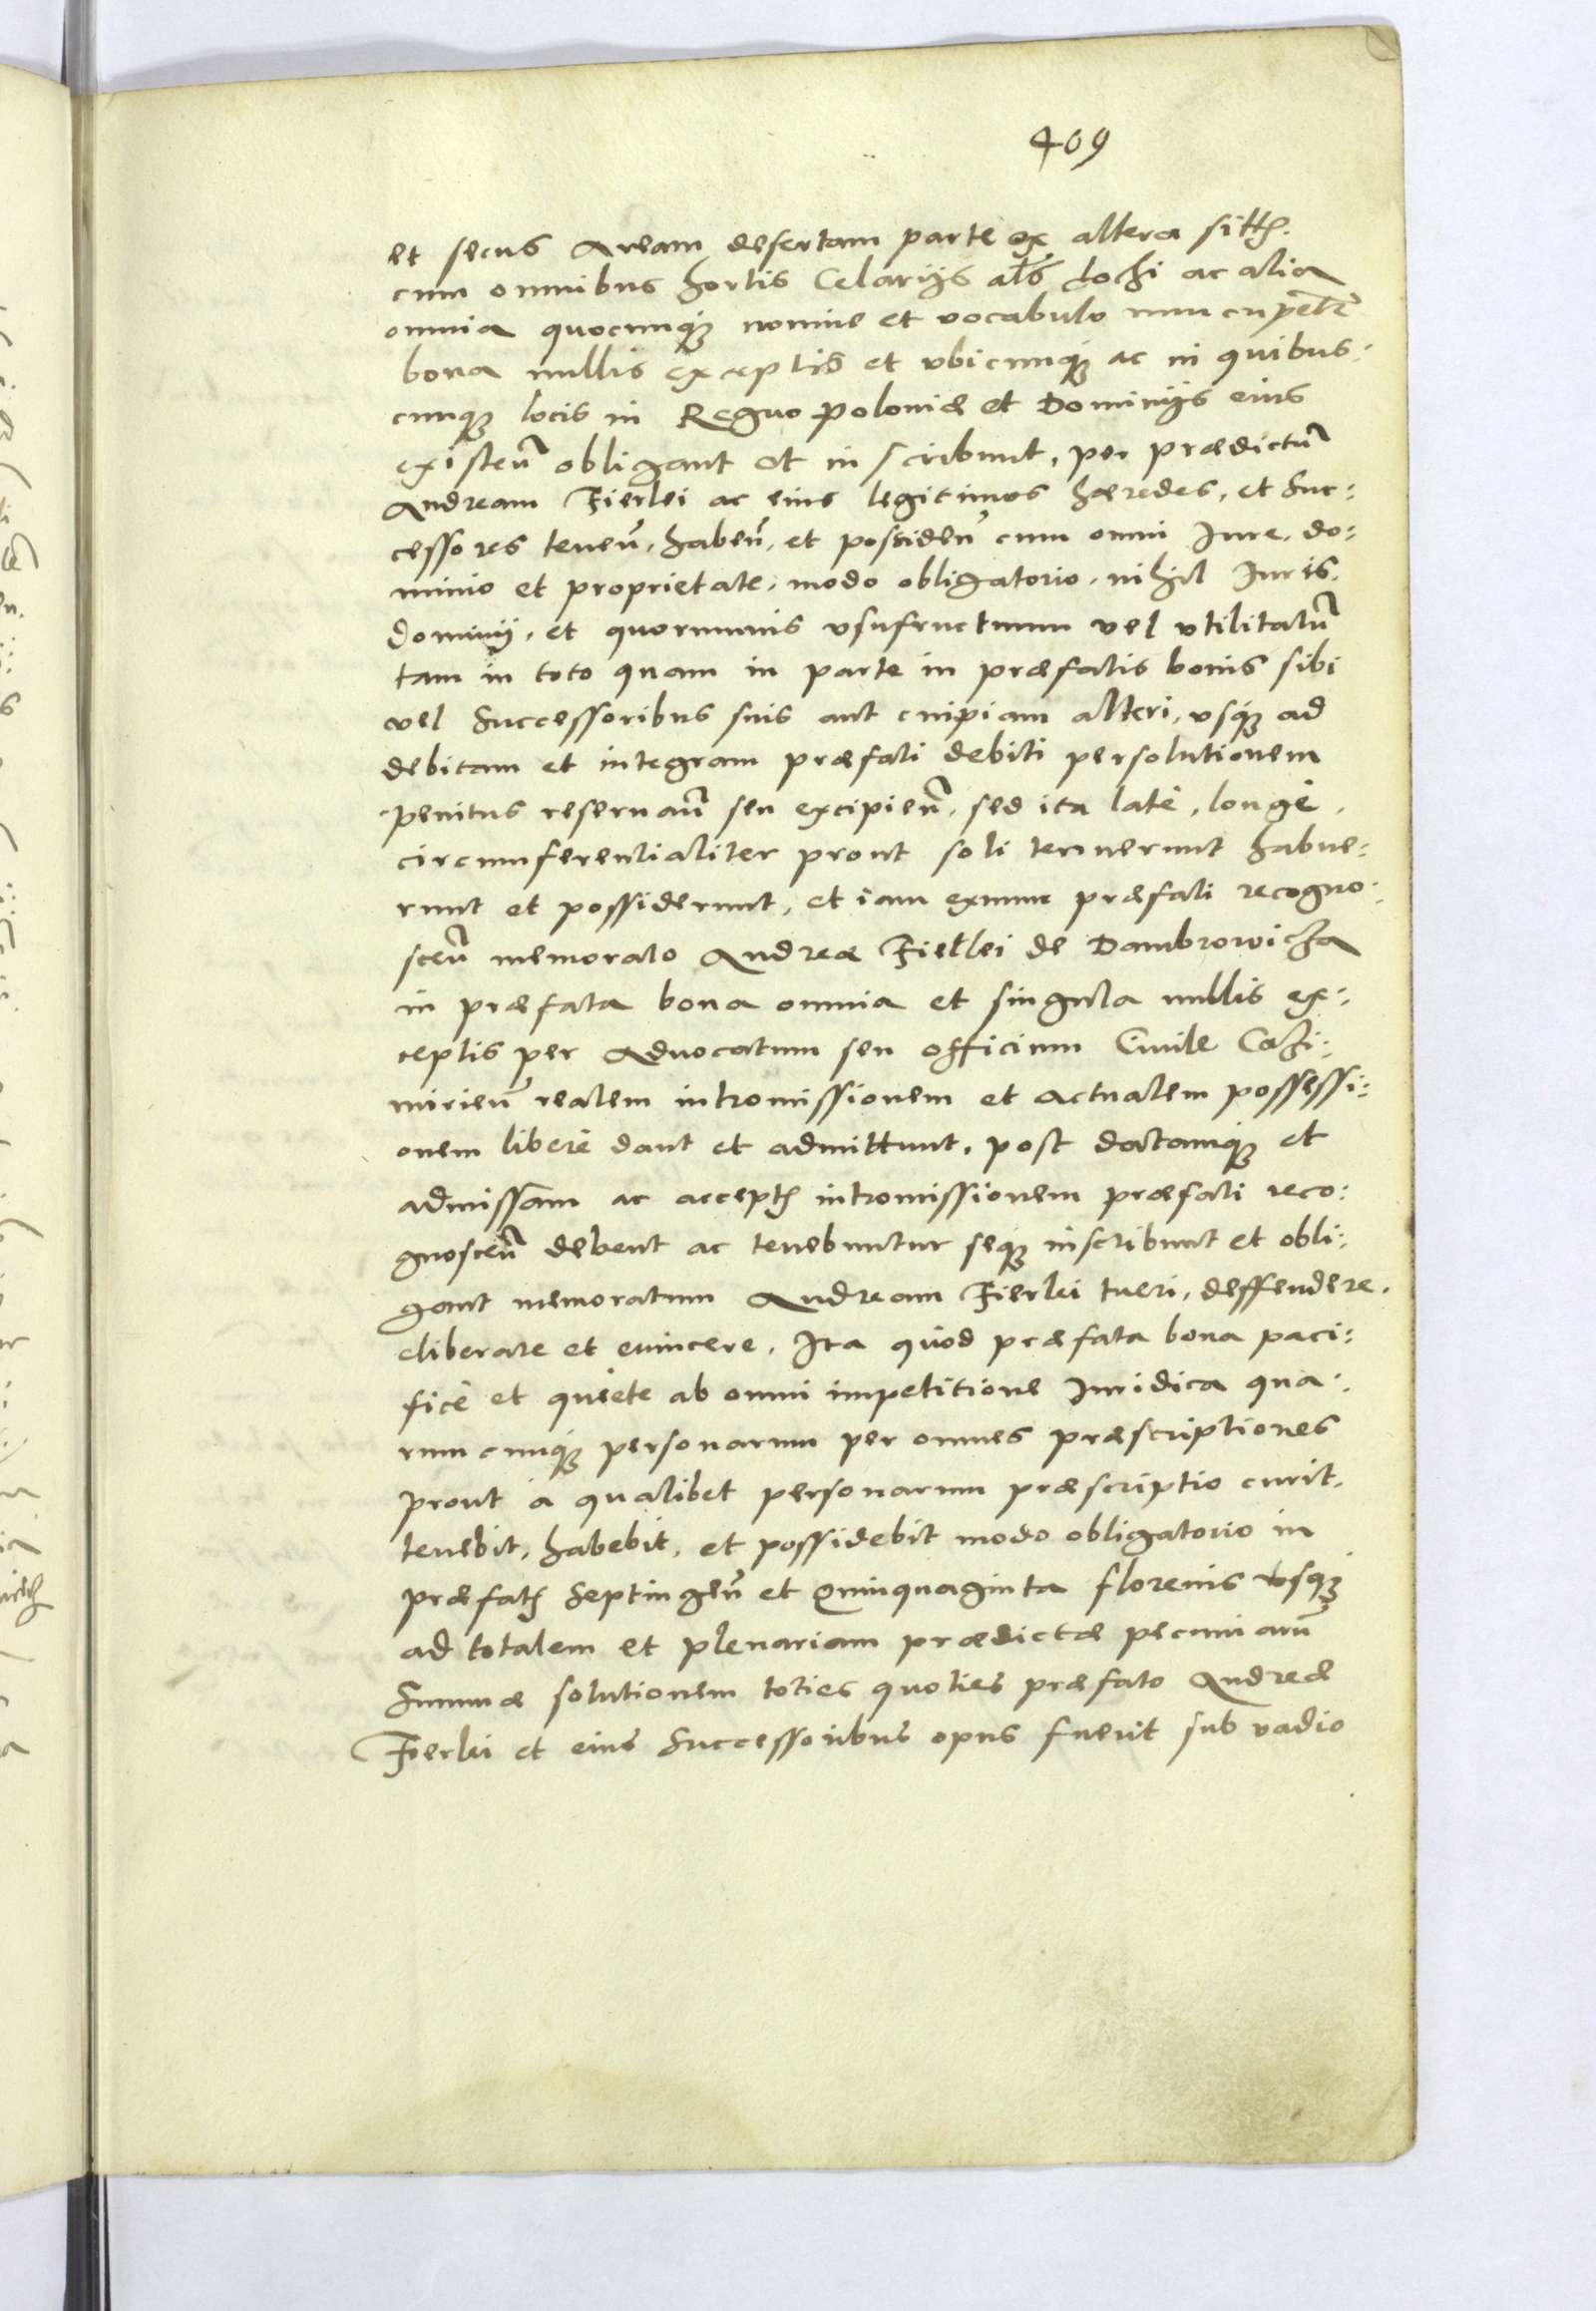 409
et secus Aream desertam parte ex altera sitt.
cum omnibus hortis Celarijs als dochi ac alia
omnia quocunque nomine et vocabulo nuncupet
bona nullis exceptis et vbicunque ac in quibus:
cunque locis in Regno Poloniæ et Dominijs eius
existeñ obligant et inscribunt, per prædictũ
Andream Fierlei ac eius legitimos hæredes, et Suc:
cessores teneñ, habeñ, et possideñ cum omni Iure, do:
minio et proprietate, modo obligatorio, nihil Iuris,
dominij, et quorumuis vsufructuum vel vtilitatũ
tam in toto quam in parte in præfatis bonis sibi
vel Successoribus suis aut cuipiam alteri, vsque ad
debitam et integram præfati debiti persolutionem
penitus reseruañ seu excipieñ, sed ita late, longè,
circumferentialiter prout soli tenuerunt habue:
runt et possiderunt, et iam exnunc præfati recogno:
sceñ memorato Andreæ Fierlei de Dambrowicza
in præfata bona omnia et singula nullis ex:
ceptis per Aduocatum seu officium Ciuile Cazi:
mirieñ realem intromissionem et actualem possessi:
onem liberè dant et admittunt, post datamque et
admissam ac accept intromissionem præfati reco:
gnosceñ debent ac tenebuntur seque inscribunt et obli:
gant memoratum Andream Fierlei tueri, deffendere,
eliberare et euincere, Ita quòd præfata bona paci:
ficè et quiete ab omni impetitione Iuridica qua:
rumcunque personarum per omnes præscriptiones
prout à qualibet personarum præscriptio currit,
tenebit, habebit, et possidebit modo obligatorio in
præfat Septingeñ et Quinquaginta florenis vsque
ad totalem et plenariam prædictæ pecuniarũ
Summæ solutionem toties quoties præfato Andreæ
Fierlei et eius Successoribus opus fuerit sub vadio